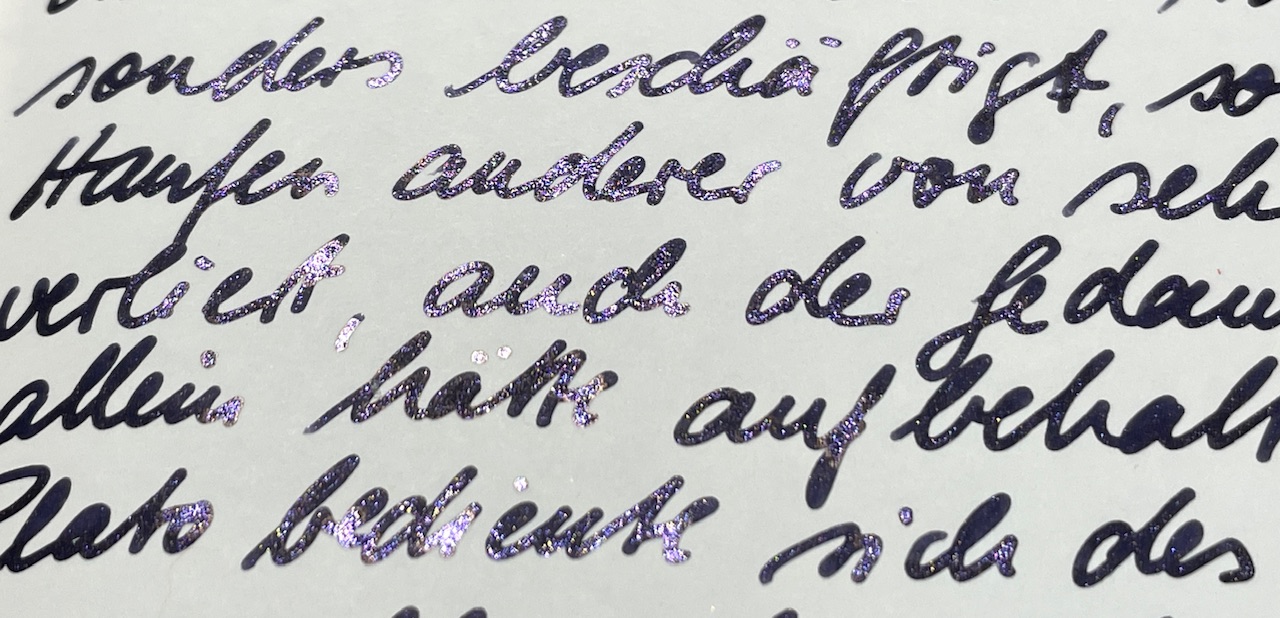 sonders beschäftigt, so
Haufen anderer von seh
verliert, auch der Gedan
allein hätte aufbehalt
Plato bediente sich des